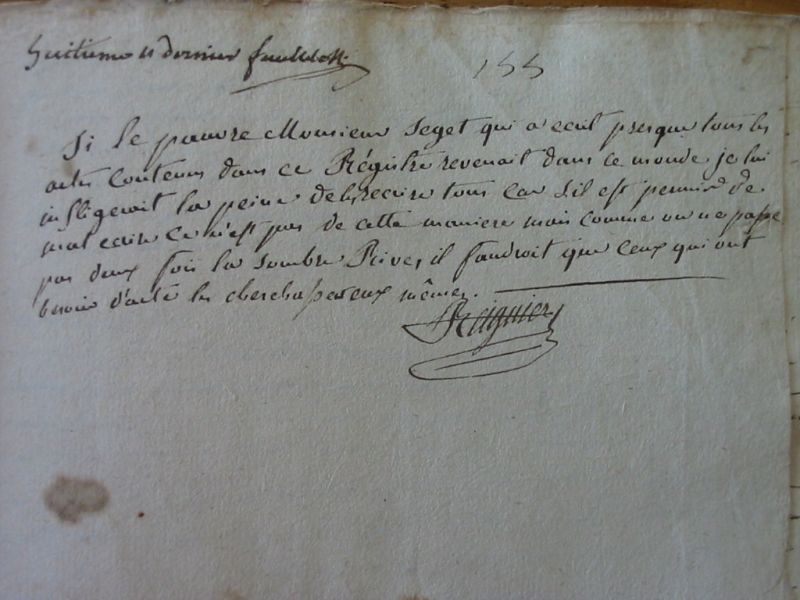 huitieme et dernier feuillet
155
Si le pauvre Monsieur Seget qui a ecrit presque tous les
actes Contenus dans ce Régistre revenait dans ce monde je lui
infligerait la peine de les recrire tous car s'il est permis de
mal ecrire ce n'est pas de cette maniere mais comme on ne passe
pas deux fois la sombre Rive, il faudroit que ceux qui ont
besoin d'acte les cherchasse eux mêmes.
Reignier